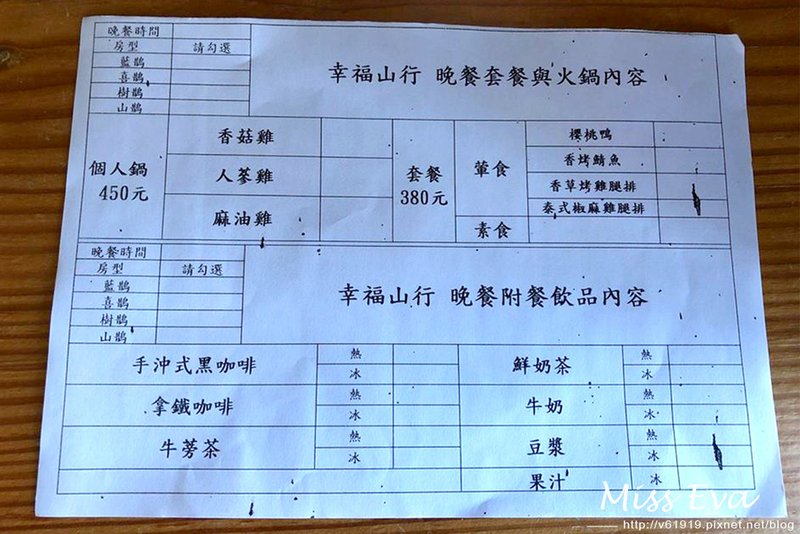 晚餐時間
房型 請勾選
藍鵲
喜鵲
樹鵲
山鵲
幸福山行 晚餐套餐與火鍋內容
個人鍋
450元
香菇雞
人蔘雞
麻油雞
套餐
380元
葷食
櫻桃鴨
香烤鯖魚
香草烤雞腿排
泰式椒麻雞腿排
素食
晚餐時間
房型 請勾選
藍鵲
喜鵲
樹鵲
山鵲
幸福山行 晚餐附餐飲品內容
手沖式黑咖啡 熱
冰
拿鐵咖啡 熱
冰
牛蒡茶 熱
冰
鮮奶茶 熱
冰
牛奶 熱
冰
豆漿 熱
冰
果汁 冰
Miss Eva
http://v61919.pixnet.net/blog